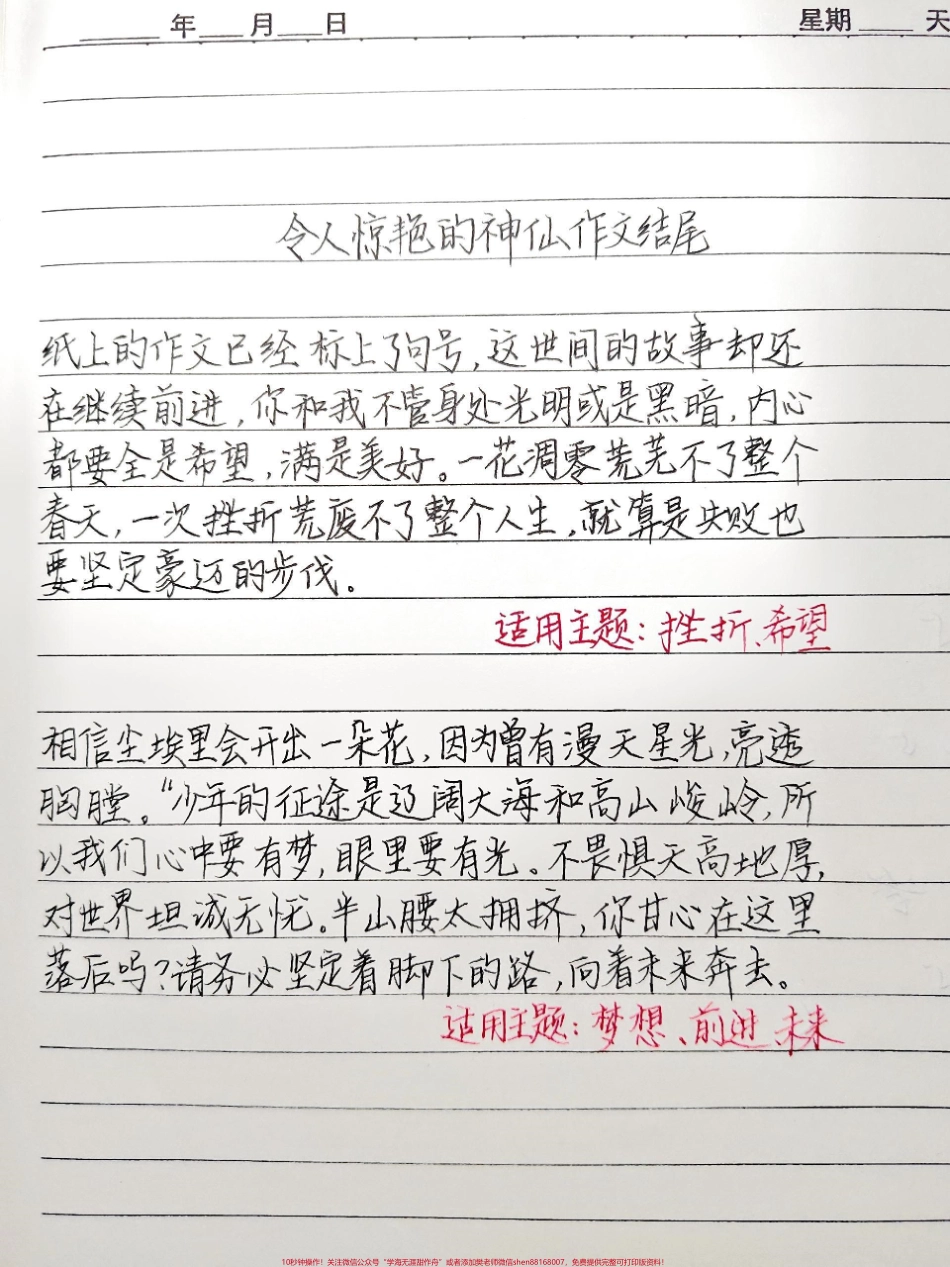 年 月 日 星期 天
令人惊艳的神仙作文结尾
纸上的作文已经标上了句号，这世间的故事却还
在继续前进，你和我不管身处光明或是黑暗，内心
都要全是希望，满是美好。一花凋零荒芜不了整个
春天，一次挫折荒废不了整个人生，就算是失败也
要坚定豪迈的步伐。
适用主题：挫折、希望
相信尘埃里会开出一朵花，因为曾有漫天星光，亮透
胸膛。“少年的征途是辽阔大海和高山峻岭，所
以我们心中要有梦，眼里要有光。不畏惧天高地厚，
对世界坦诚无忧。半山腰太拥挤，你甘心在这里
落后吗？请务必坚定着脚下的路，向着未来奔去。
适用主题：梦想、前进、未来
10秒钟操作！关注微信公众号“学海无涯甜作舟”或者添加樊老师微信shen88168007，免费提供完整可打印版资料！